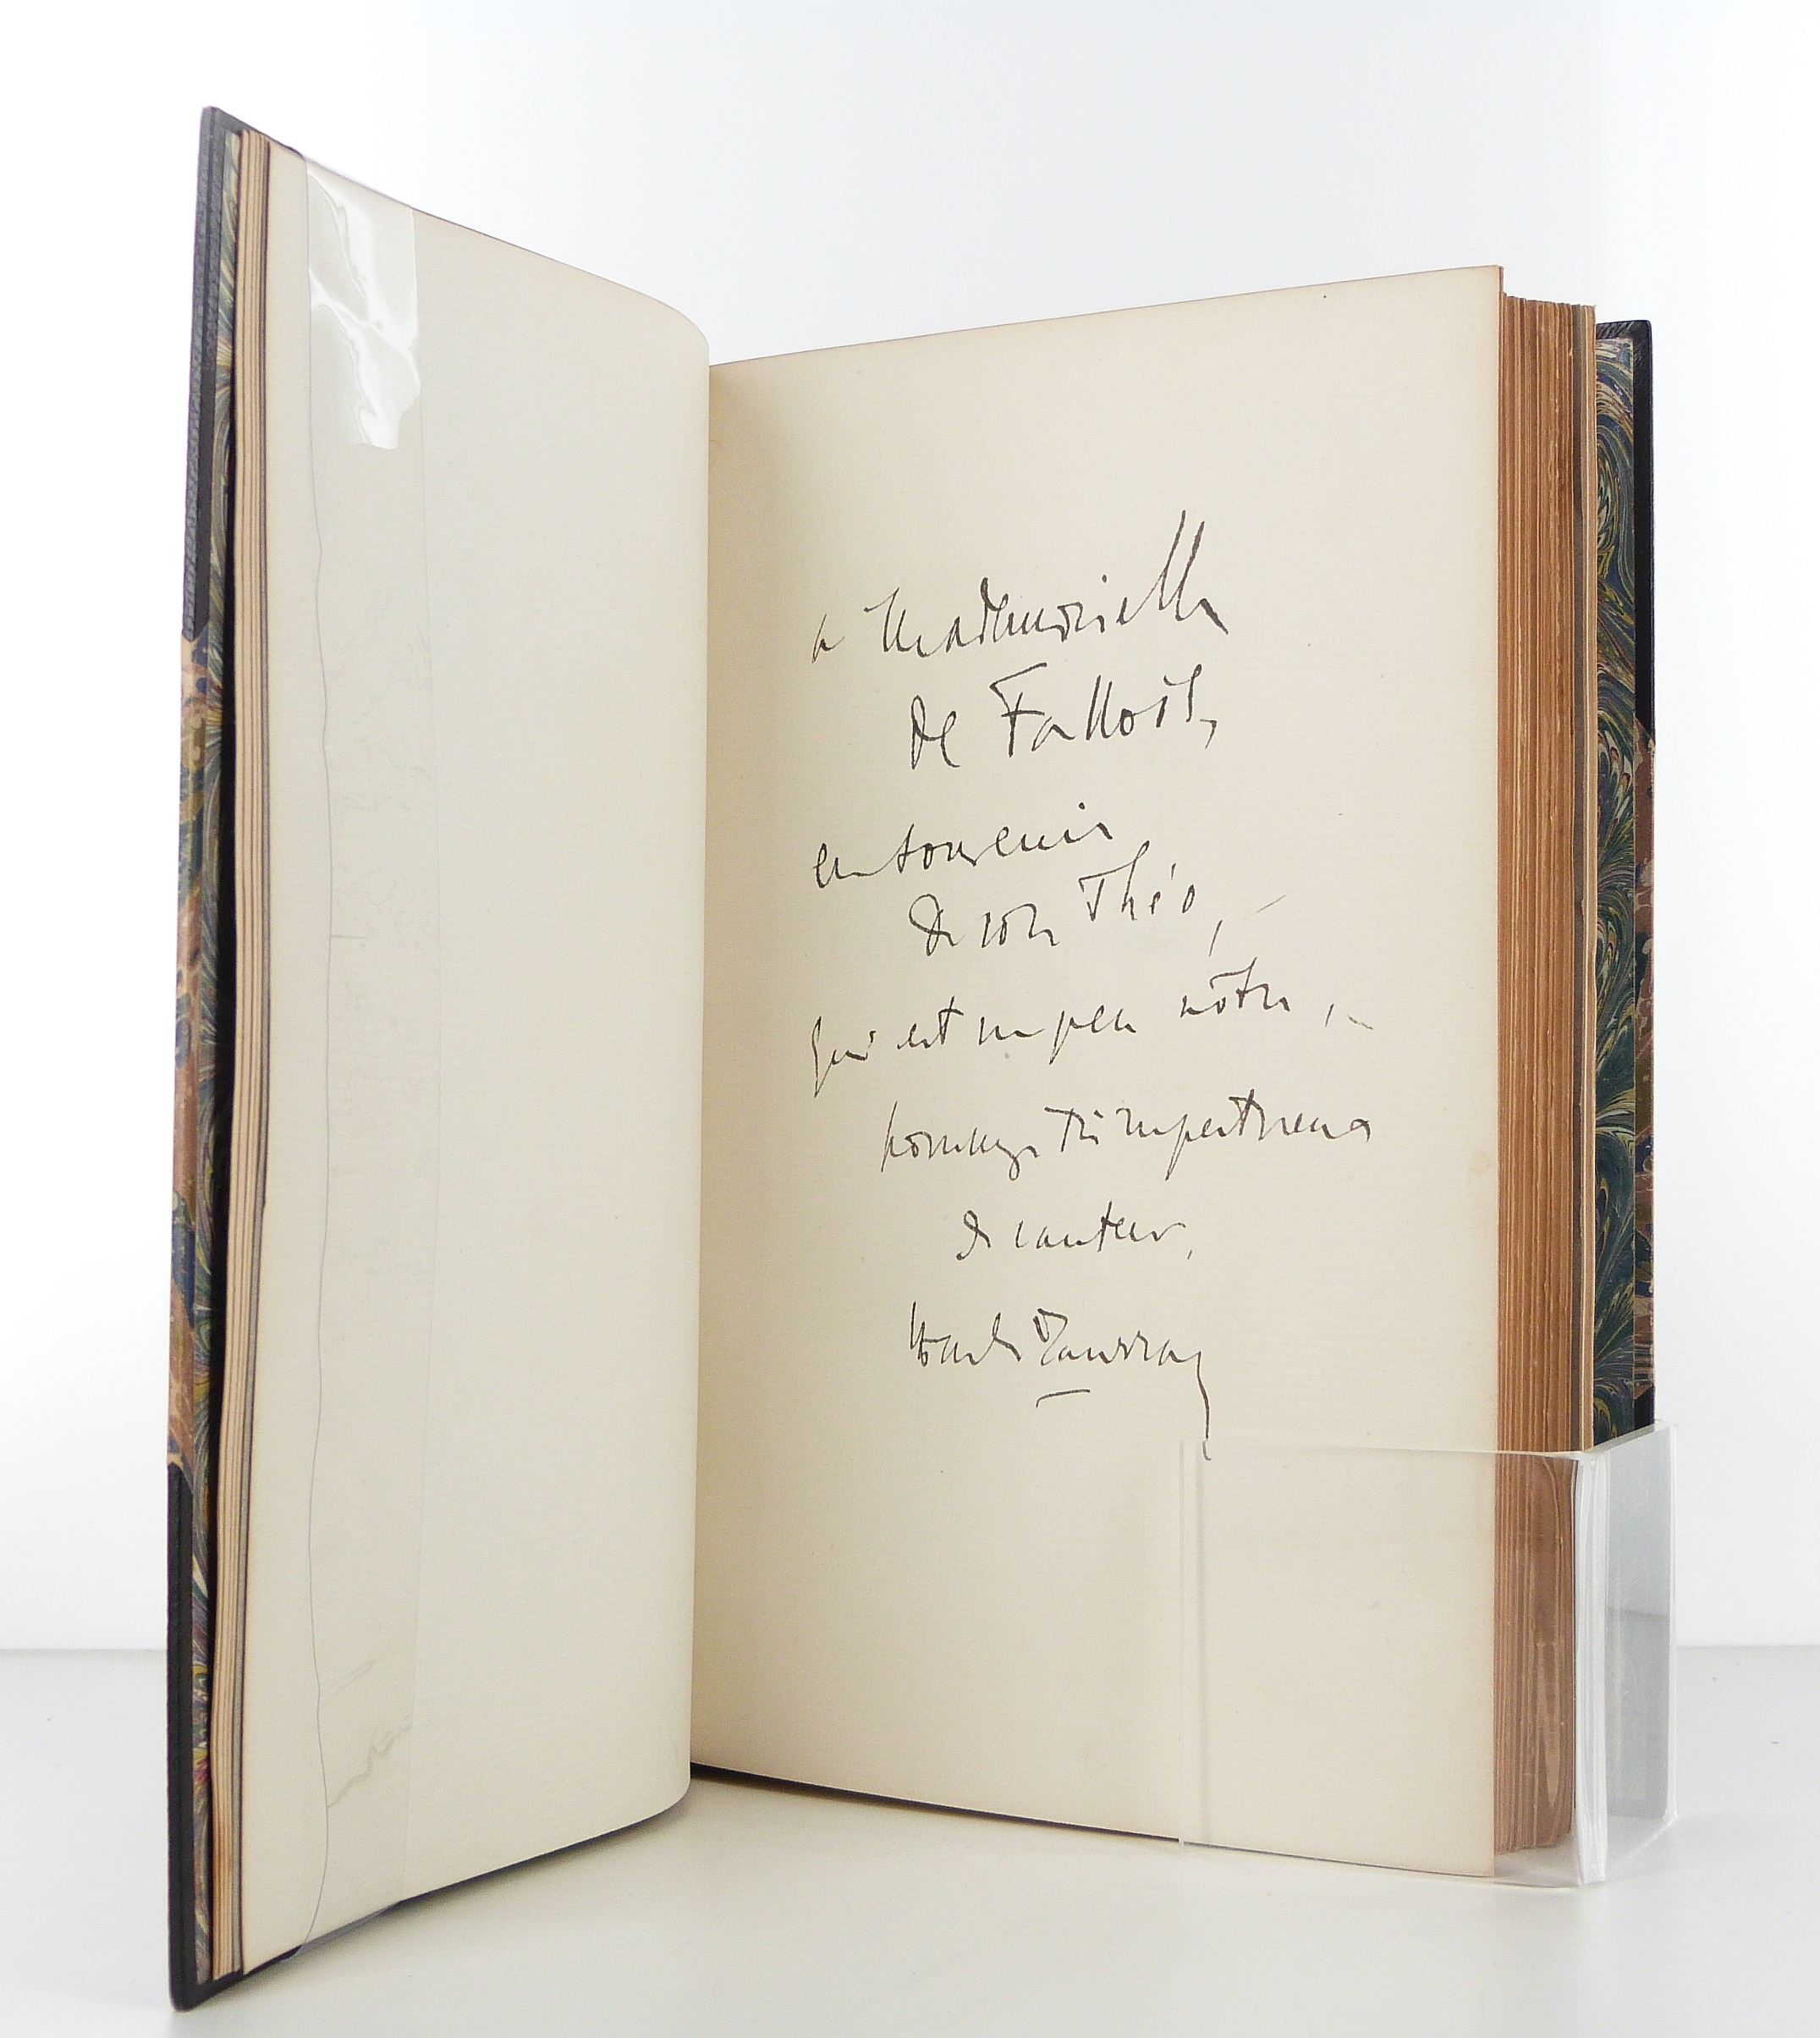 a Mademoiselle
de Fallois,
en souvenir
de son Théo, –
qui est un peu nôtre, –
hommage très impertinent
de l'auteur,